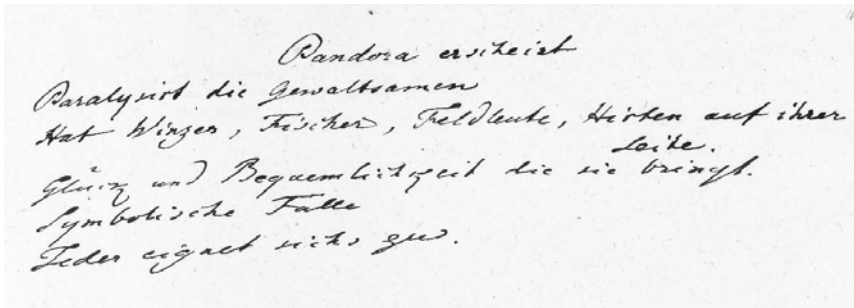 Pandora erscheint
Paralysirt die Gewaltsamen
Hat Winzer, Fischer, Feldleute, Hirten auf ihrer
Seite.
Glück und Bequemlichkeit die sie bringt.
Symbolische Fülle
Jeder eignet sichs zu.